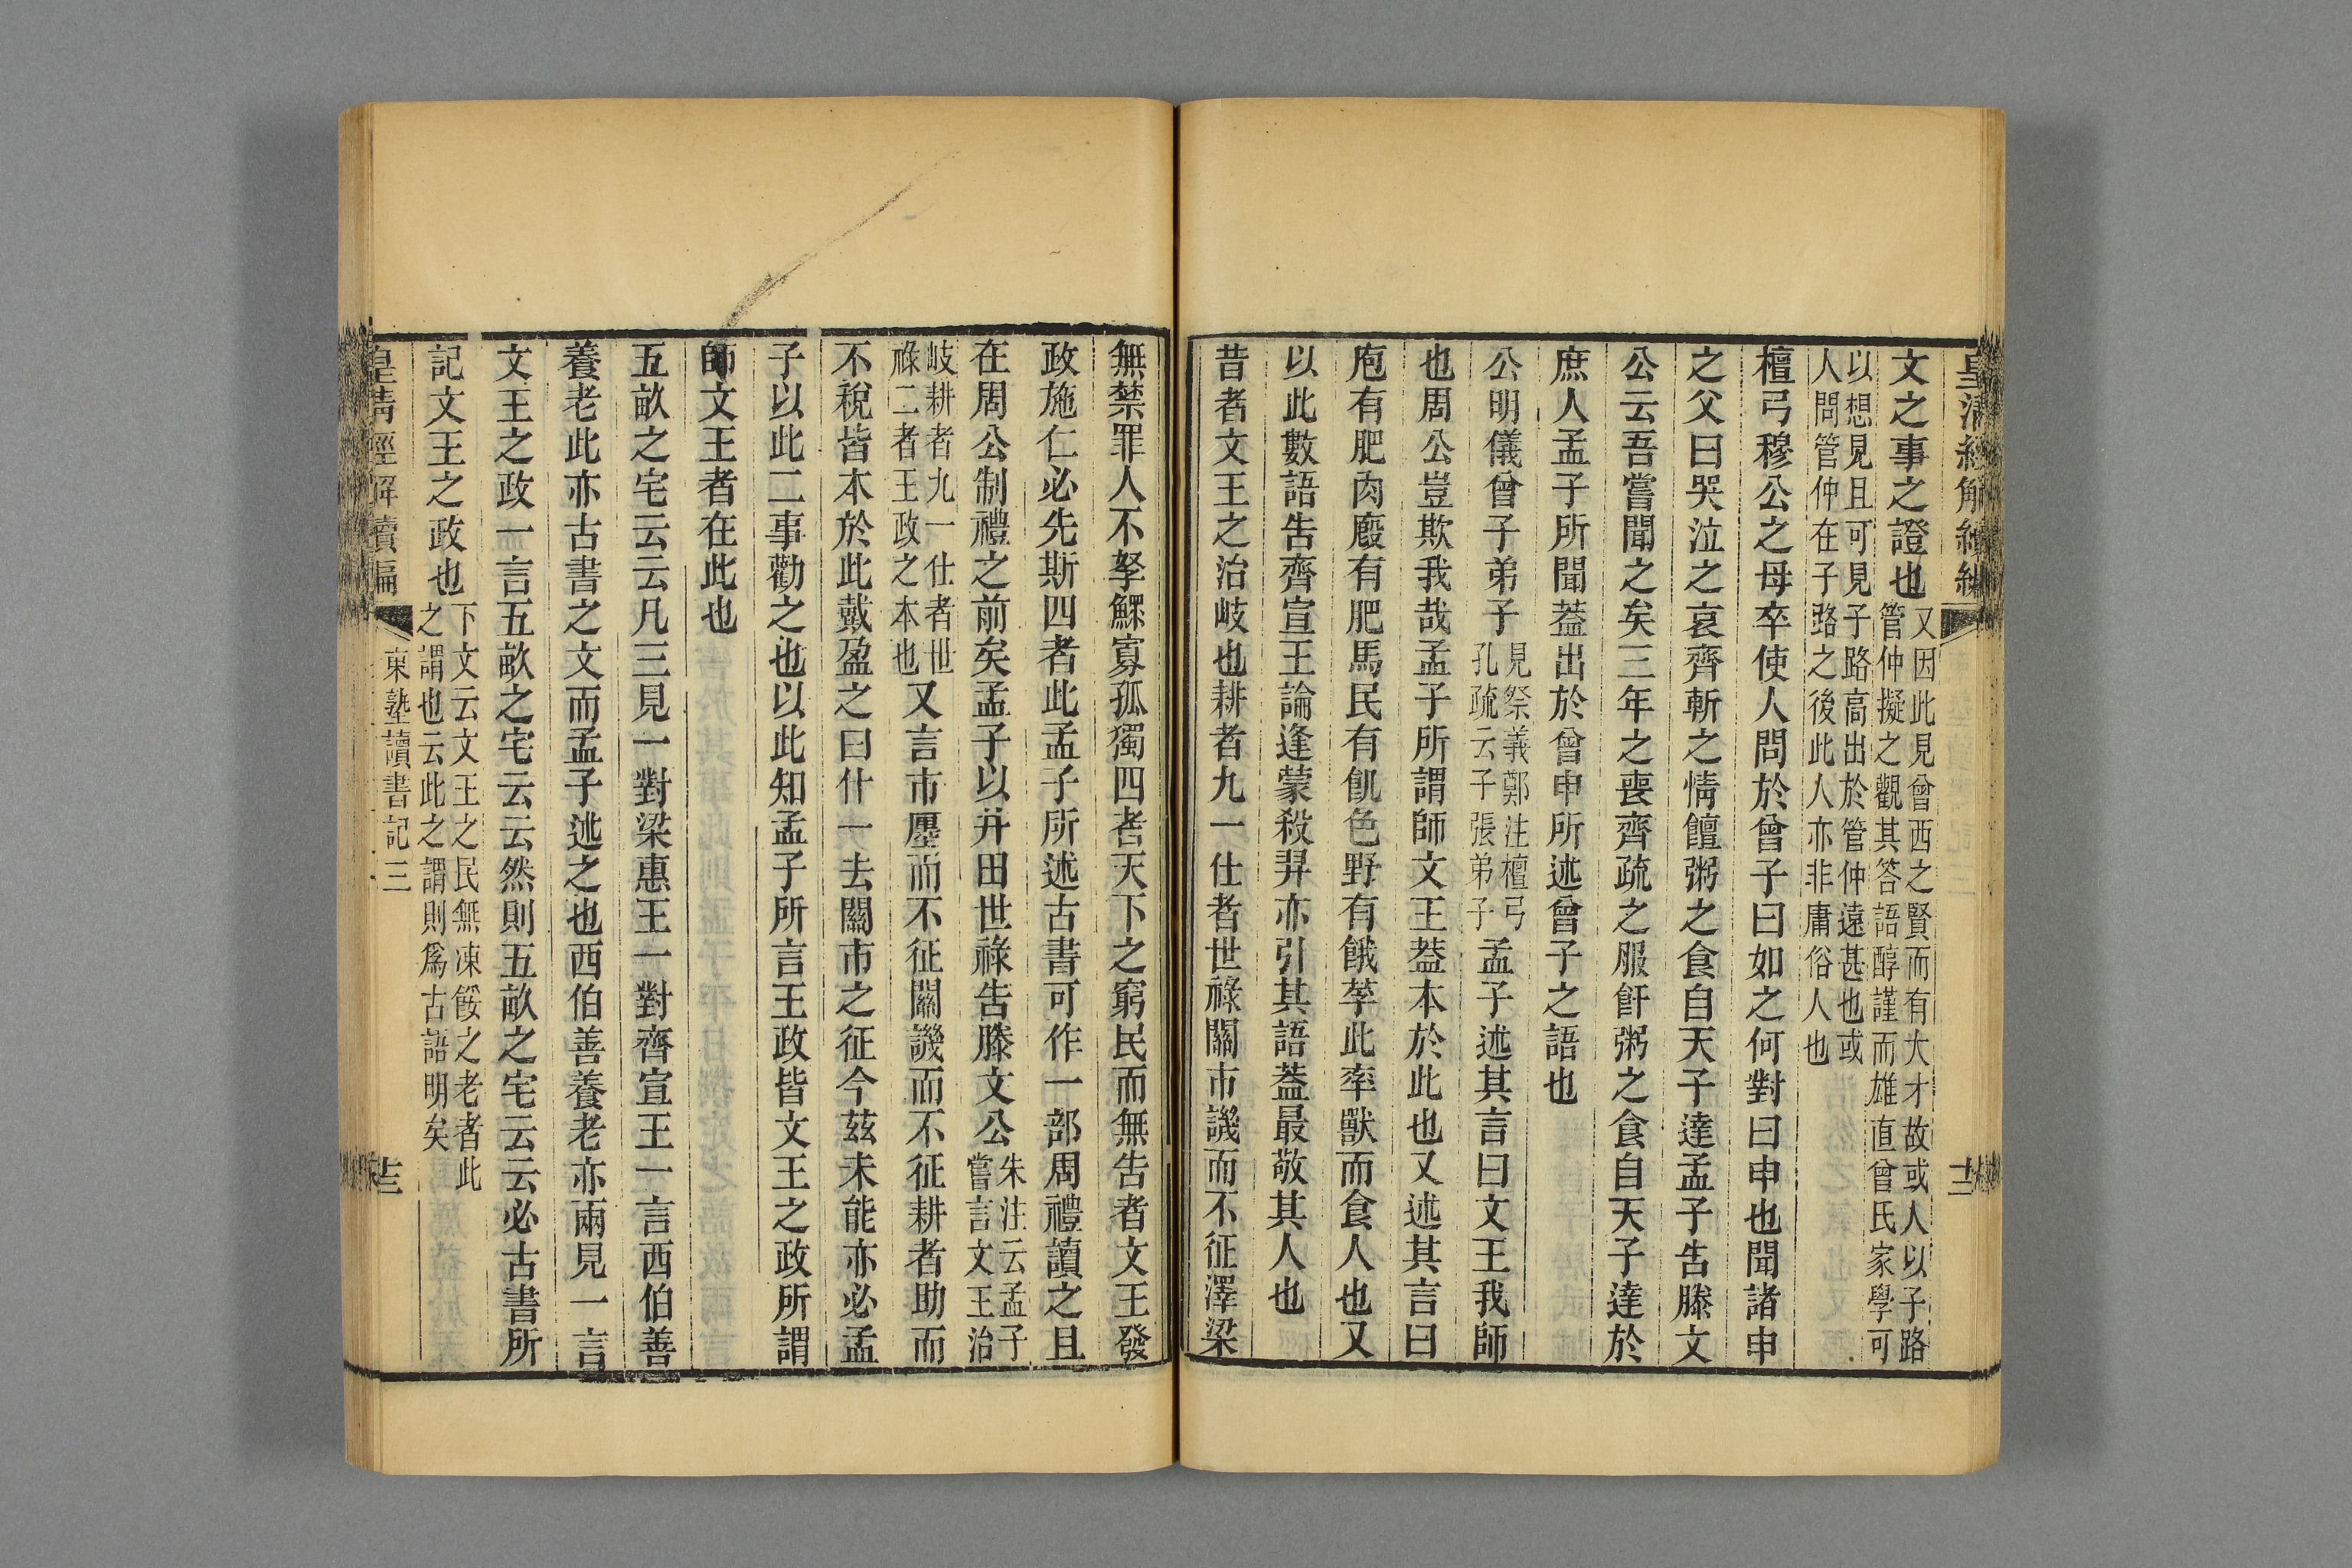 皇清經解續編
十二
文之事之證也又因此見曾西之賢而有大才故或人以子路管仲擬之觀其答語醇謹而雄直曾氏家學可
以想見且可見子路高出於管仲遠甚也或人問管仲在子路之後此人亦非庸俗人也
檀弓穆公之母卒使人問於曾子曰如之何對曰申也聞諸申
之父曰哭泣之哀齊斬之情饘粥之食自天子達孟子告滕文
公云吾嘗聞之矣三年之喪齊疏之服飦粥之食自天子達於
庶人孟子所聞葢出於曾申所述曾子之語也
公明儀曾子弟子見祭義鄭注檀弓孔疏云子張弟子孟子述其言曰文王我師
也周公豈欺我哉孟子所謂師文王葢本於此也又述其言曰
庖有肥肉廄有肥馬民有飢色野有餓莩此率獸而食人也又
以此數語告齊宣王論逢蒙殺羿亦引其語葢最敬其人也
昔者文王之治岐也耕者九一仕者世祿關市譏而不征澤梁
無禁罪人不孥鰥寡孤獨四者天下之窮民而無告者文王發
政施仁必先斯四者此孟子所述古書可作一部周禮讀之且
在周公制禮之前矣孟子以井田世祿告滕文公朱注云孟子嘗言文王治
岐耕者九一仕者世祿二者王政之本也又言市廛而不征關譏而不征耕者助而
不稅皆本於此戴盈之曰什一去關市之征今茲未能亦必孟
子以此二事勸之也以此知孟子所言王政皆文王之政所謂
師文王者在此也
五畝之宅云云凡三見一對梁惠王一對齊宣王一言西伯善
養老此亦古書之文而孟子述之也西伯善養老亦兩見一言
文王之政一言五畝之宅云云然則五畝之宅云云必古書所
記文王之政也下文云文王之民無凍餒之老者此之謂也云此之謂則爲古語明矣
皇清經解續編
東塾讀書記三
十三